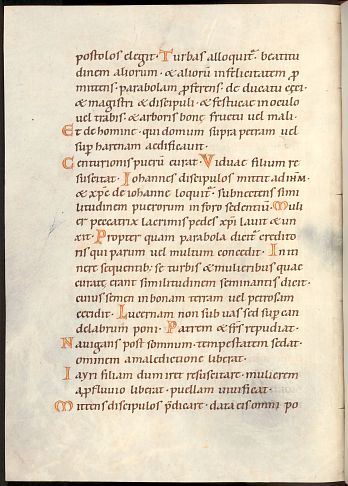 postolos elegit · Turbas alloquit᷒ · beatitu
dinem aliorum · & alioru̅ infelicitatem ꝓ
mittens · parabolam ꝓferens · de ducatu ceci
& magistri & discipuli · & festucae in oculo
vel trabis · & arboris bonę fructu vel mali ·
Et de homine · qui domum supra petram vel
sup harenam aedificavit ·
Centurionis pueru̅ curat · Viduae filium re
suscitat · Iohannes discipulos mittit ad ih̅m ·
& xp̅c de iohanne loquit᷒ · subnectens simi
litudinem puerorum in foro sedentiu̅ · Muli
er peccatrix lacrimis pedes xp̅i lavit & un
xit · Propter quam parabola dicit᷒ credito
ris qui parum vel multum concedit · In iti
nere sequentib; se turbis & mulieribus quae
curatę erant similitudinem seminantis dicit ·
cuius semen in bonam terram vel petrosam
cecidit · Lucernam non sub uas sed sup can
delabrum poni · Patrem & fr̅s repudiat ·
Navigans post somnum · tempestatem sedat ·
ominem a maledictione liberat ·
Iayri filiam dum iret resuscitare · mulierem
a ꝓfluvio liberat · puellam vivificat ·
Mittens discipulos p̅dicare · data eis omni po